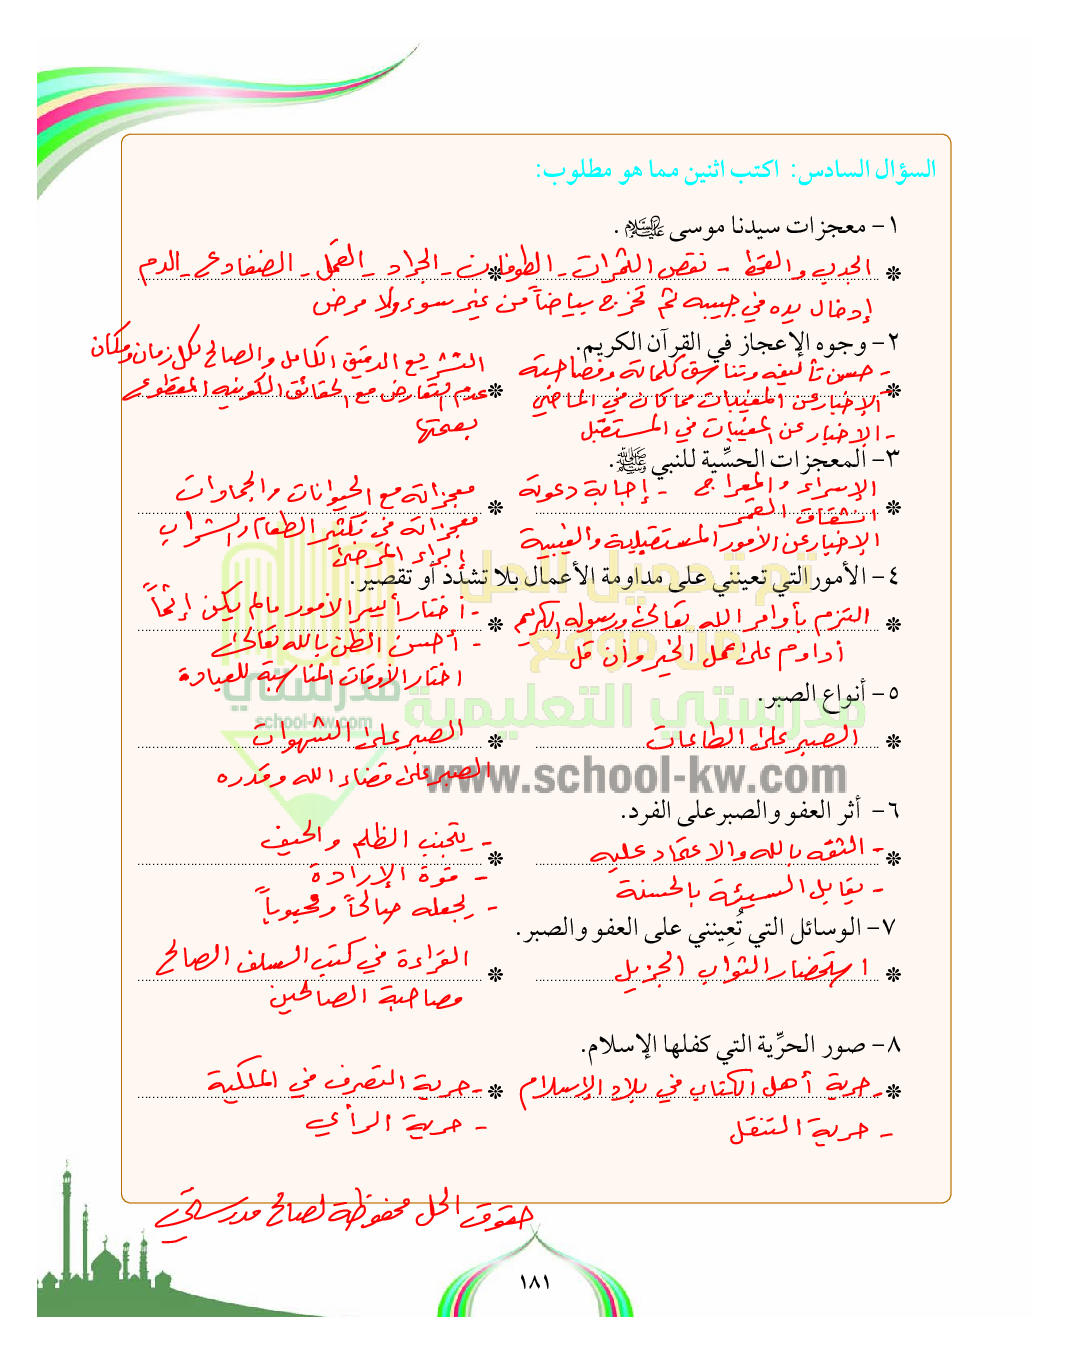 السؤال السادس: اكتب اثنين مما هو مطلوب:
١- معجزات سيدنا موسى عليه السلام.
الجدب والقحط - نقص الثمرات - الطوفان - الجراد - القمل - الضفادع - الدم
إدخال يده في جيبه ثم تخرج بياضاً من غير سوء ولا مرض
٢- وجوه الإعجاز في القرآن الكريم.
- حسن تأليفه وتناسق كلماته وفصاحته
- الإخبار عن المغيبات مما كان في الماضي
- الإخبار عن المغيبات في المستقبل
التشريع الدقيق الكامل والصالح لكل زمان ومكان
عدم التعارض مع الحقائق الكونية المقطوع
بصحتها
٣- المعجزات الحسِّية للنبي ﷺ.
الإسراء والمعراج - إجابة دعوته
انشقاق القمر
الإخبار عن الأمور المستقبلية والغيبية
معجزاته مع الحيوانات والجمادات
معجزاته في تكثير الطعام والشراب
إبراء المرضى
٤- الأمور التي تعينني على مداومة الأعمال بلا تشدّد أو تقصير.
التزم بأوامر الله تعالى ورسوله الكريم
أداوم على عمل الخير وأن قل
- اختار أيسر الأمور مالم يكن إثماً
- أحسن الظن بالله تعالى
اختار الأوقات المناسبة للعبادة
٥- أنواع الصبر.
الصبر على الطاعات
الصبر على الشهوات
الصبر على قضاء الله وقدره
٦- أثر العفو والصبر على الفرد.
- الثقه بالله والاعتماد عليه
- يقابل السيئة بالحسنة
- يتجنب الظلم والحيف
- قوة الإرادة
- يجعله صالحاً ومحبوباً
٧- الوسائل التي تُعِينني على العفو والصبر.
استحضار الثواب الجزيل
القراءة في كتب السلف الصالح
مصاحبة الصالحين
٨- صور الحرِّية التي كفلها الإسلام.
- حرية أهل الكتاب في بلاد الإسلام
- حرية التنقل
- حرية التصرف في الملكية
- حرية الرأي
حقوق الحل محفوظة لصالح مدرستي
١٨١
تم تحميل الحل
من موقع
مدرستي التعليمية
www.school-kw.com
مدرستي
school-kw.com